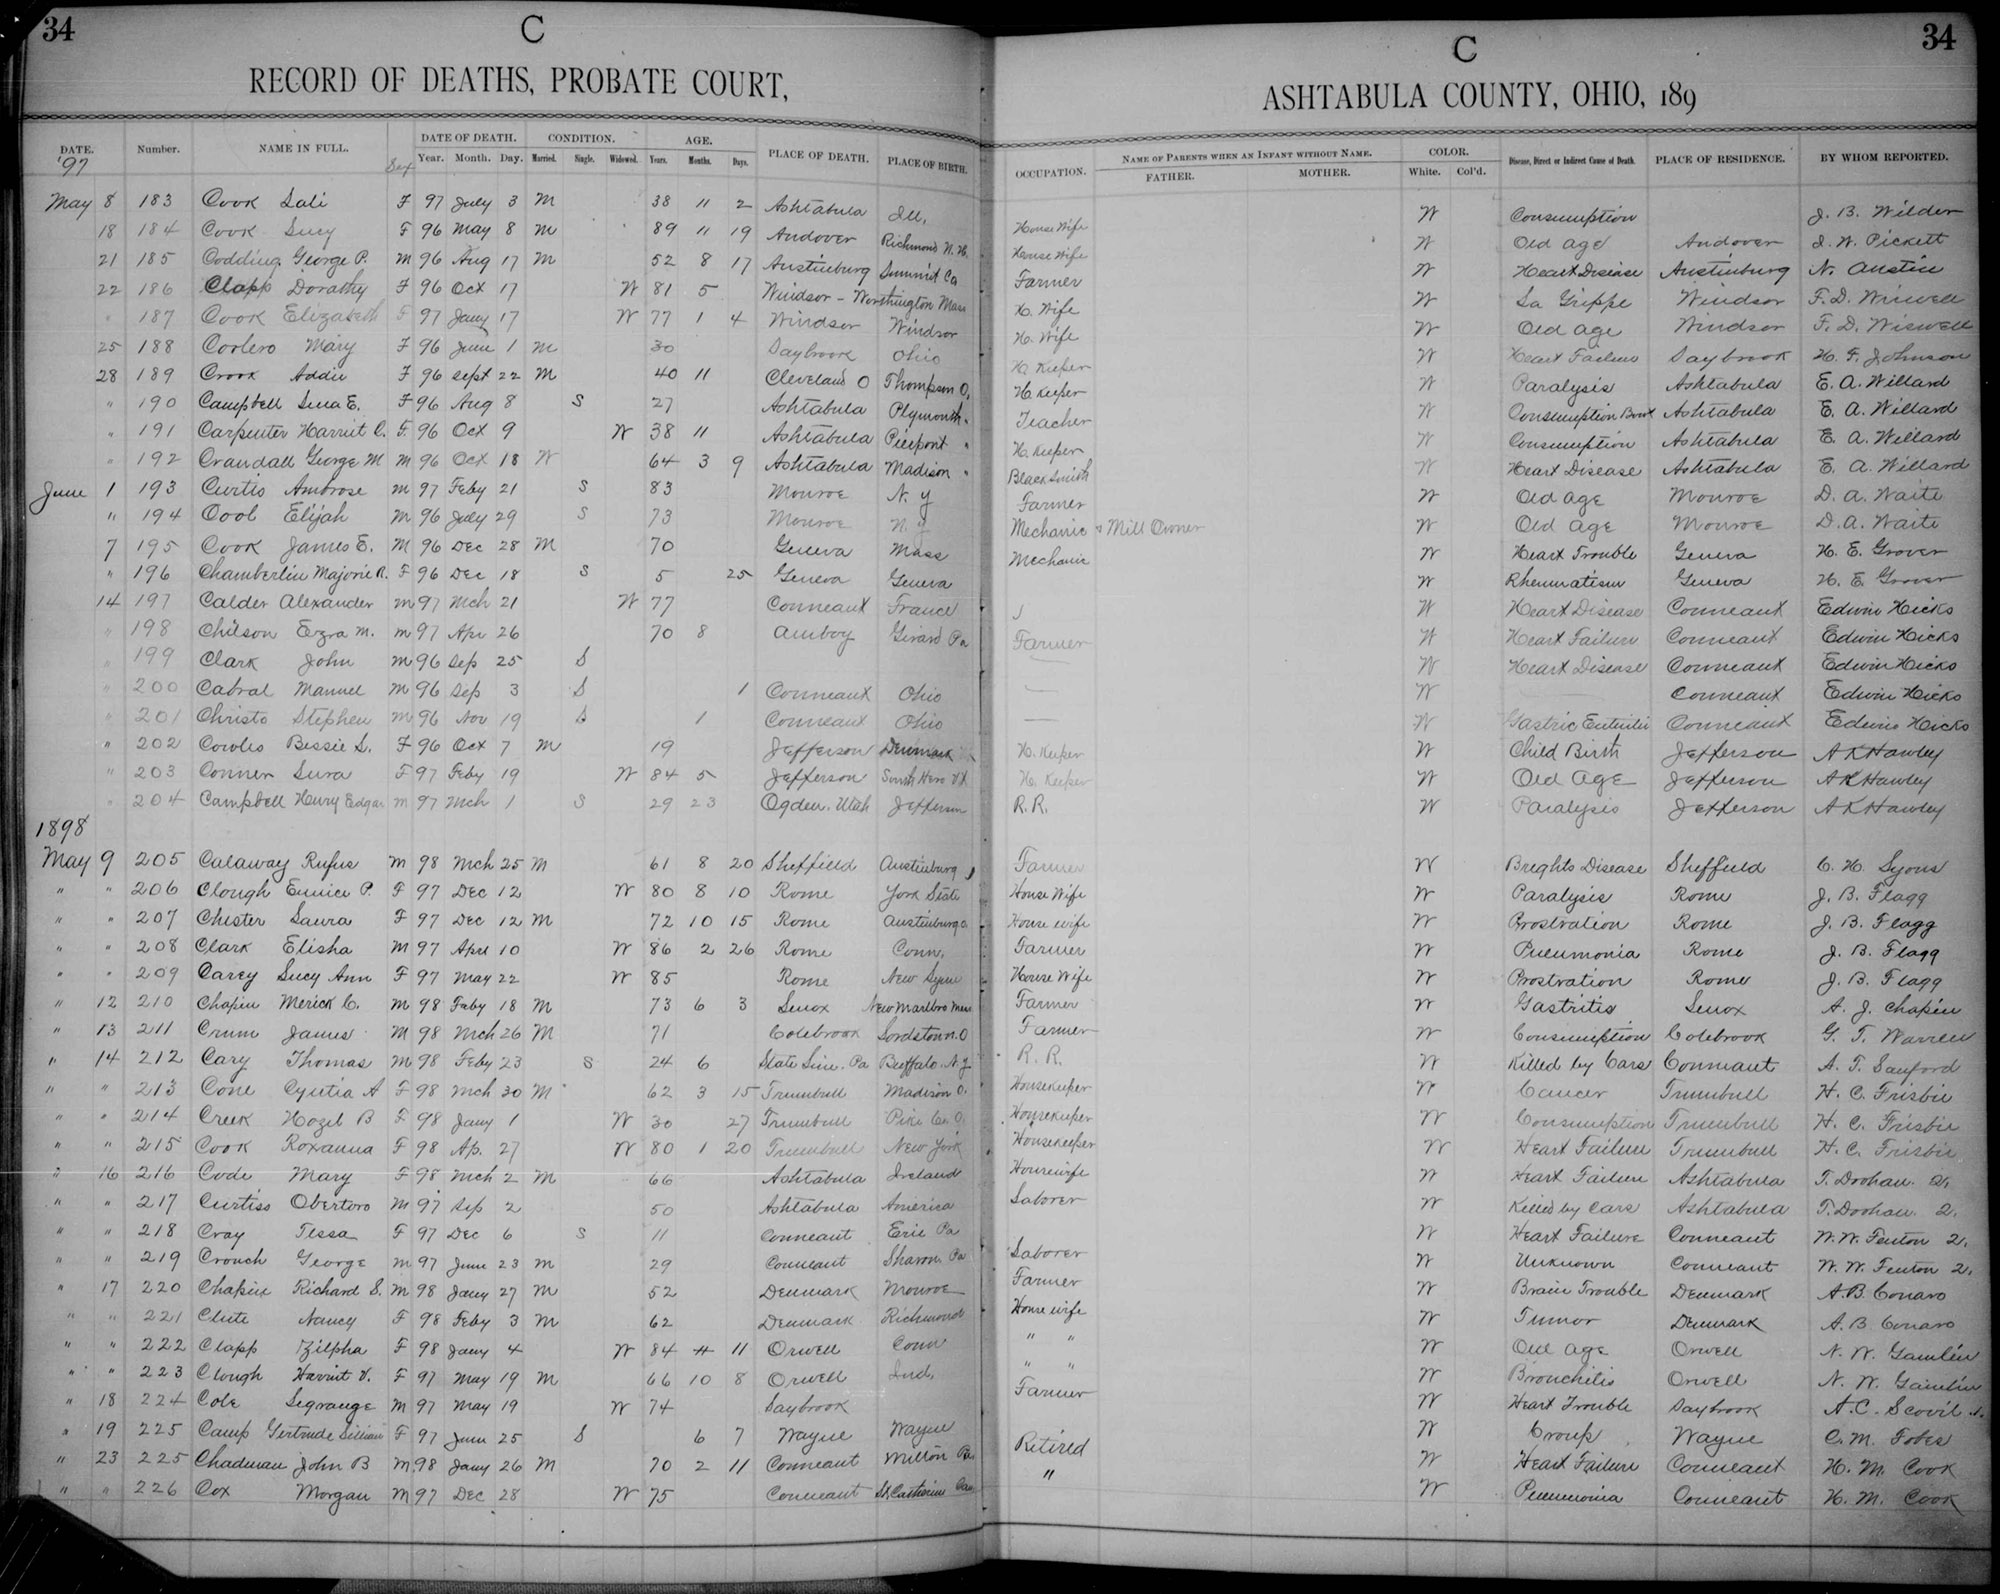 34 C C 34
RECORD OF DEATHS, PROBATE COURT, ASHTABULA COUNTY, OHIO, 189
DATE. Number. NAME IN FULL. Sex DATE OF DEATH. CONDITION. AGE. PLACE OF DEATH. PLACE OF BIRTH. OCCUPATION. NAME OF PARENTS WHEN AN INFANT WITHOUT NAME. COLOR. Disease, Direct or Indirect Cause of Death. PLACE OF RESIDENCE. BY WHOM REPORTED.
'97 Year. Month. Day. Married. Single. Widowed. Years. Months. Days. FATHER. MOTHER. White. Col'd.
May 8 183 Cook Sali F 97 July 3 M 38 11 2 Ashtabula Ill, House Wife W Consumption J. B. Wilder
18 184 Cook Lucy F 96 May 8 M 89 11 19 Andover Richmond N. H. House Wife W Old age Andover J. W. Pickett
21 185 Codding George P. M 96 Aug 17 M 52 8 17 Austinburg Summit Co Farmer W Heart Disease Austinburg N. Austin
22 186 Clapp Dorathy F 96 Oct 17 W 81 5 Windsor - Worthington Mass H. Wife W La Grippe Windsor F. D. Wiswell
" 187 Cook Elizabeth F 97 Jany 17 W 77 1 4 Windsor Windsor H. Wife W Old age Windsor F. D. Wiswell
25 188 Coolero Mary F 96 June 1 M 30 Saybrook Ohio H. Keeper W Heart Failure Saybrook H. F. Johnson
28 189 Crook Addie F 96 Sept 22 M 40 11 Cleveland O Thompson O. H. Keeper W Paralysis Ashtabula E. A. Willard
" 190 Campbell Lena E. F 96 Aug 8 S 27 Ashtabula Plymouth " Teacher W Consumption Ashtabula E. A. Willard
" 191 Carpenter Harriet C. F. 96 Oct 9 W 38 11 Ashtabula Pierpont " H. Keeper W Consumption Ashtabula E. A. Willard
" 192 Crandall George M M 96 Oct 18 W 64 3 9 Ashtabula Madison " BlackSmith W Heart Disease Ashtabula E. A. Willard
June 1 193 Curtis Ambrose M 97 Feby 21 S 83 Monroe N. Y Farmer W Old age Monroe D. A. Waite
" 194 Cool Elijah M 96 July 29 S 73 Monroe N. Y Mechanic & Mill Owner W Old age Monroe D. A. Waite
7 195 Cook James E. M 96 Dec 28 M 70 Geneva Mass Mechanic W Heart Trouble Geneva H. E. Grover
" 196 Chamberlin Majorie R. F 96 Dec 18 S 5 25 Geneva Geneva W Rheumatism Geneva H. E. Grover
14 197 Calder Alexander M 97 Mch 21 W 77 Conneaut France W Heart Disease Conneaut Edwin Hicks
" 198 Chilson Ezra M. M 97 Apr 26 70 8 Amboy Girard Pa Farmer W Heart Failure Conneaut Edwin Hicks
" 199 Clark John M 96 Sep 25 S — W Heart Disease Conneaut Edwin Hicks
" 200 Cabral Manuel M 96 Sep 3 S 1 Conneaut Ohio — W — Conneaut Edwin Hicks
" 201 Christo Stephen M 96 Nov 19 S 1 Conneaut Ohio — W Gastric Enteritis Conneaut Edwin Hicks
" 202 Cowles Bessie L. F 96 Oct 7 M 19 Jefferson Denmark H. Keeper W Child Birth Jefferson A K Hawley
" 203 Conner Lura F 97 Feby 19 W 84 5 Jefferson South Hero Vt H. Keeper W Old Age Jefferson A K Hawley
" 204 Campbell Henry Edgar M 97 Mch 1 S 29 23 Ogden. Utah Jefferson R. R. W Paralysis Jefferson A K Hawley
1898
May 9 205 Calaway Rufus M 98 Mch 25 M 61 8 20 Sheffield Austinburg Farmer W Brights Disease Sheffield C. H. Lyons
" " 206 Clough Eunice P. F 97 Dec 12 W 80 8 10 Rome York State House Wife W Paralysis Rome J. B. Flagg
" " 207 Chester Laura F 97 Dec 12 M 72 10 15 Rome Austinburg O. House wife W Prostration Rome J. B. Flagg
" " 208 Clark Elisha M 97 Apri 10 W 86 2 26 Rome Conn, Farmer W Pneumonia Rome J. B. Flagg
" " 209 Carey Lucy Ann F 97 May 22 W 85 Rome New Lyme House Wife W Prostration Rome J. B. Flagg
" 12 210 Chapin Merick C. M 98 Feby 18 M 73 6 3 Lenox New Marlbro Mass Farmer W Gastritis Lenox A. J. Chapin
" 13 211 Crum James M 98 Mch 26 M 71 Colebrook Lordstown. O Farmer W Consumption Colebrook G. T. Warren
" 14 212 Cary Thomas M 98 Feby 23 S 24 6 State Line. Pa Buffalo. N. Y R. R. W Killed by Cars Conneaut A. T. Sanford
" " 213 Cone Cyntia A F 98 Mch 30 M 62 3 15 Trumbull Madison O. Housekeeper W Cancer Trumbull H. C. Frisbie
" " 214 Creek Hozel B F 98 Jany 1 W 30 27 Trumbull Pike Co. O. Housekeeper W Consumption Trumbull H. C. Frisbie
" " 215 Cook Roxanna F 98 Ap. 27 W 80 1 20 Trumbull New York Housekeeper W Heart Failure Trumbull H. C. Frisbie
" 16 216 Code Mary F 98 Mch 2 M 66 Ashtabula Ireland Housewife W Heart Failure Ashtabula T. Doohan. 2.
" " 217 Curtiss Obertoro M 97 Sep 2 50 Ashtabula America Laborer W Killed by Cars Ashtabula T. Doohan 2.
" " 218 Cray Tessa F 97 Dec 6 S 11 Conneaut Erie Pa W Heart Failure Conneaut W. W. Fenton 2.
" " 219 Crouch George M 97 June 23 M 29 Conneaut Sharon Pa Laborer W Unknown Conneaut W. W. Fenton 2.
" 17 220 Chapin Richard S. M 98 Jany 27 M 52 Denmark Monroe Farmer W Brain Trouble Denmark A. B. Conaro
" " 221 Clute Nancy F 98 Feby 3 M 62 Denmark Richmond House wife W Tumor Denmark A. B. Conaro
" " 222 Clapp Zilpha F 98 Jany 4 W 84 11 Orwell Conn " " W Old age Orwell N. W. Gamlin
" " 223 Clough Harriet V. F 97 May 19 M 66 10 8 Orwell Ind. " " W Bronchitis Orwell N. W. Gamlin
" 18 224 Cole Legrange M 97 May 19 W 74 Saybrook Farmer W Heart Trouble Saybrook A. C. Scovil
" 19 225 Camp Gertrude Lillian F 97 June 25 S 6 7 Wayne Wayne W Croup Wayne C. M. Fobes
" 23 225 Chadman John B M 98 Jany 26 M 70 2 11 Conneaut Milton Pa. Retired W Heart Failure Conneaut H. M. Cook
" " 226 Cox Morgan M 97 Dec 28 W 75 Conneaut St. Catherine Can " W Pneumonia Conneaut H. M. Cook